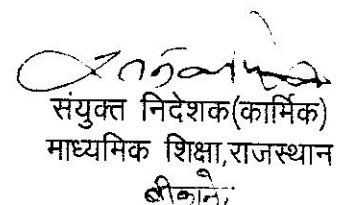 संयुक्त निदेशक(कार्मिक)
माध्यमिक शिक्षा,राजस्थान